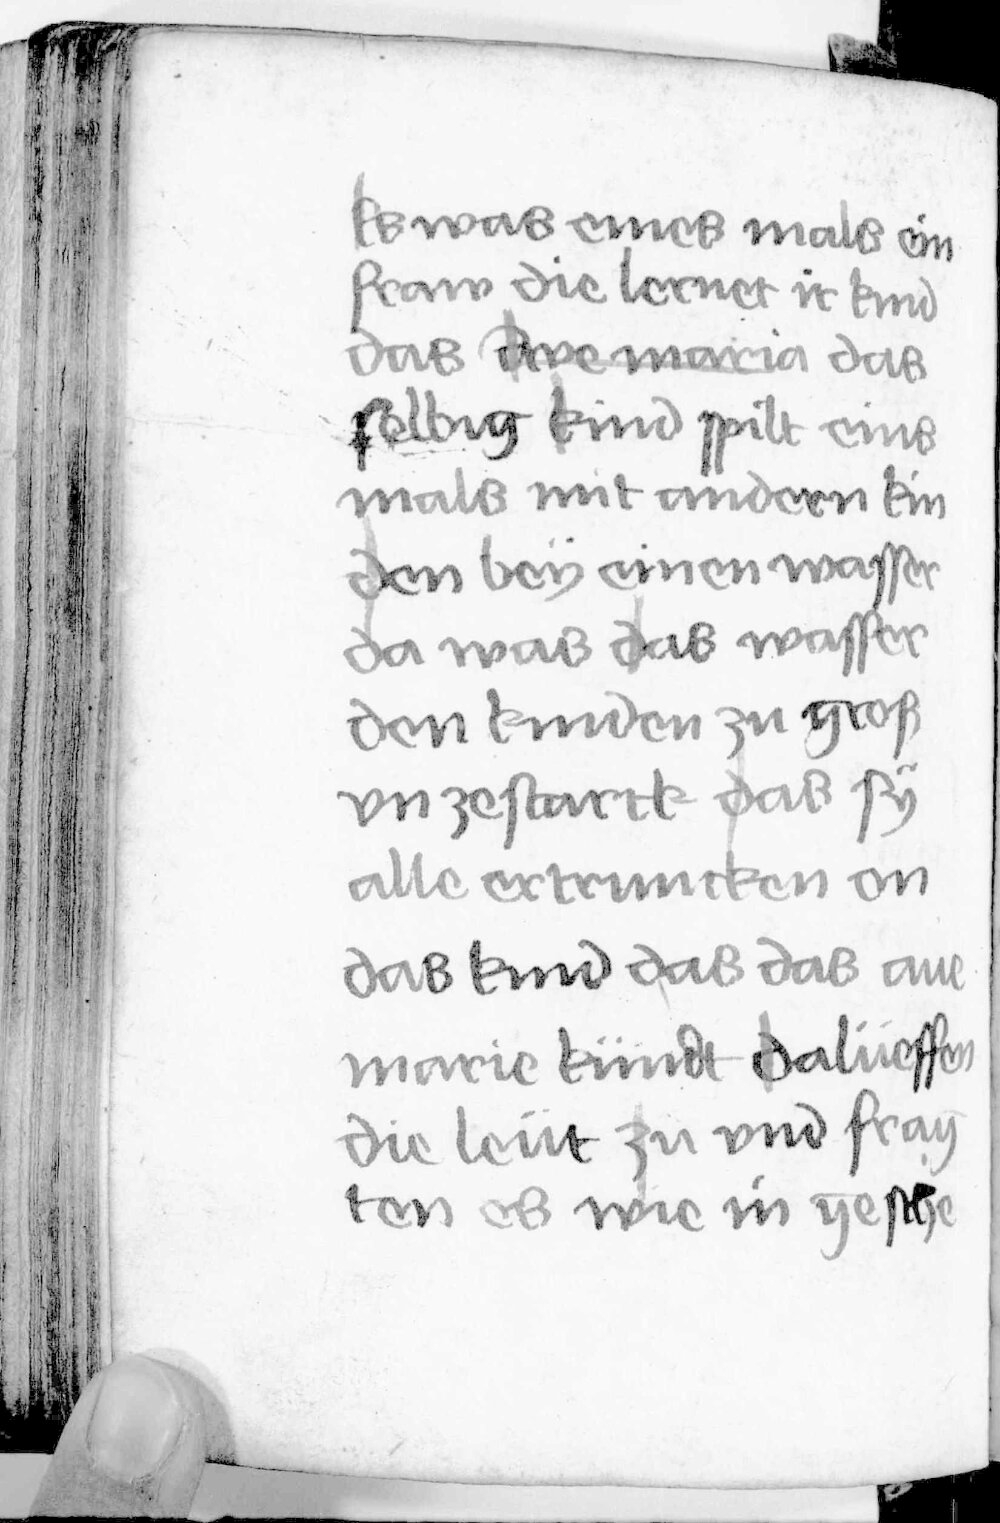 Es was eines mals ein
fraw die lernet ir kind
das Ave maria das
selbig kind spilt eins
mals mit andern kin
den beÿ einen wasser
da was das wasser
den kinden zu groß
vn ze starck das sÿ
alle ertruncken on
das kind das das aue
marie kündt da lüeffen
die leüt zu vnd frag
ten es wie in gesche